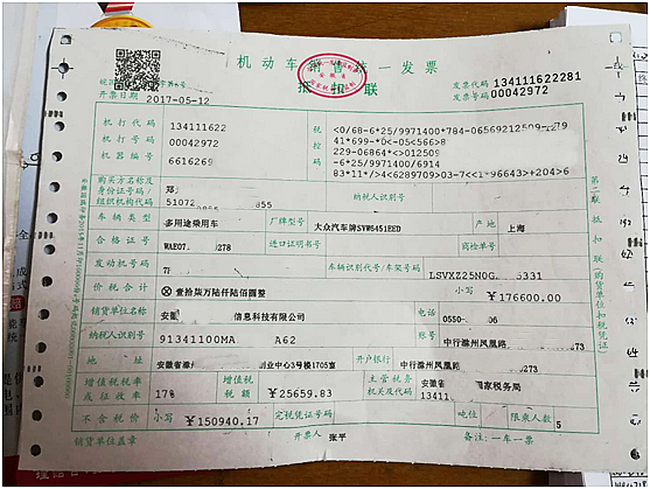 机动车销售统一发票
抵扣联
发票代码 134111622281
发票号码 00042972
开票日期 2017-05-12
机打代码 134111622
机打号码 00042972
机器编号 6616269
税控码
<0/68-6*25/9971400*784-06569212509-1279
41*699-*0<-05<566>8
229-06864*<>012509
-6*25/9971400/6914
83*11*/>4<6289709>03-7<<1*96643+204>6
购买方名称及身份证号码/组织机构代码 郑
51072 855
纳税人识别号
车辆类型 多用途乘用车 厂牌型号 大众汽车牌SVW6451EED 产地 上海
合格证号 WAE07 0278 进口证明书号 商检单号
发动机号码 7F 车辆识别代号/车架号码 LSVXZ25N0G 5331
价税合计 ⊗壹拾柒万陆仟陆佰圆整 小写 ¥176600.00
销货单位名称 安徽 信息科技有限公司 电话 0550- 06
纳税人识别号 91341100MA A62 账号 中行滁州凤凰路 273
地址 安徽省滁 创业中心3号楼1705室 开户银行 中行滁州凤凰路 8273
增值税税率或征收率 17% 增值税税额 ¥25659.83 主管税务机关及代码 安徽省 国家税务局
13411
不含税价 小写 ¥150940.17 完税凭证号码 吨位 限乘人数 5
销货单位盖章 开票人 张平 备注:一车一票
第二联 抵扣联(购货单位扣税凭证)